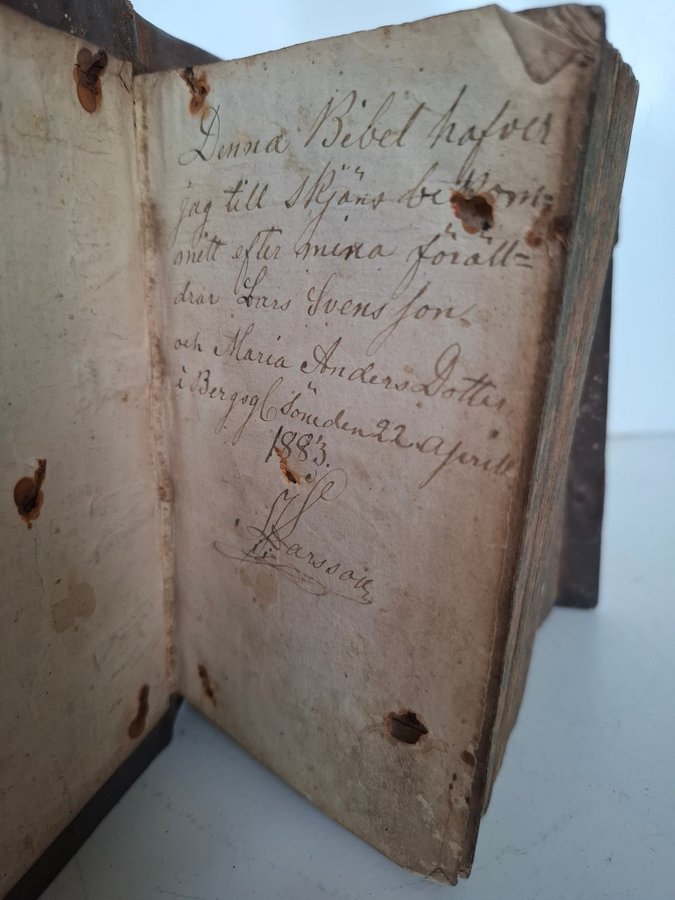 Denna Bibel hafver
jag till skjäns be kom=
mitt efter mina föräll=
drar Lars Svensson
och Maria Anders Dotter
i den 22 April
1883.
Larsson